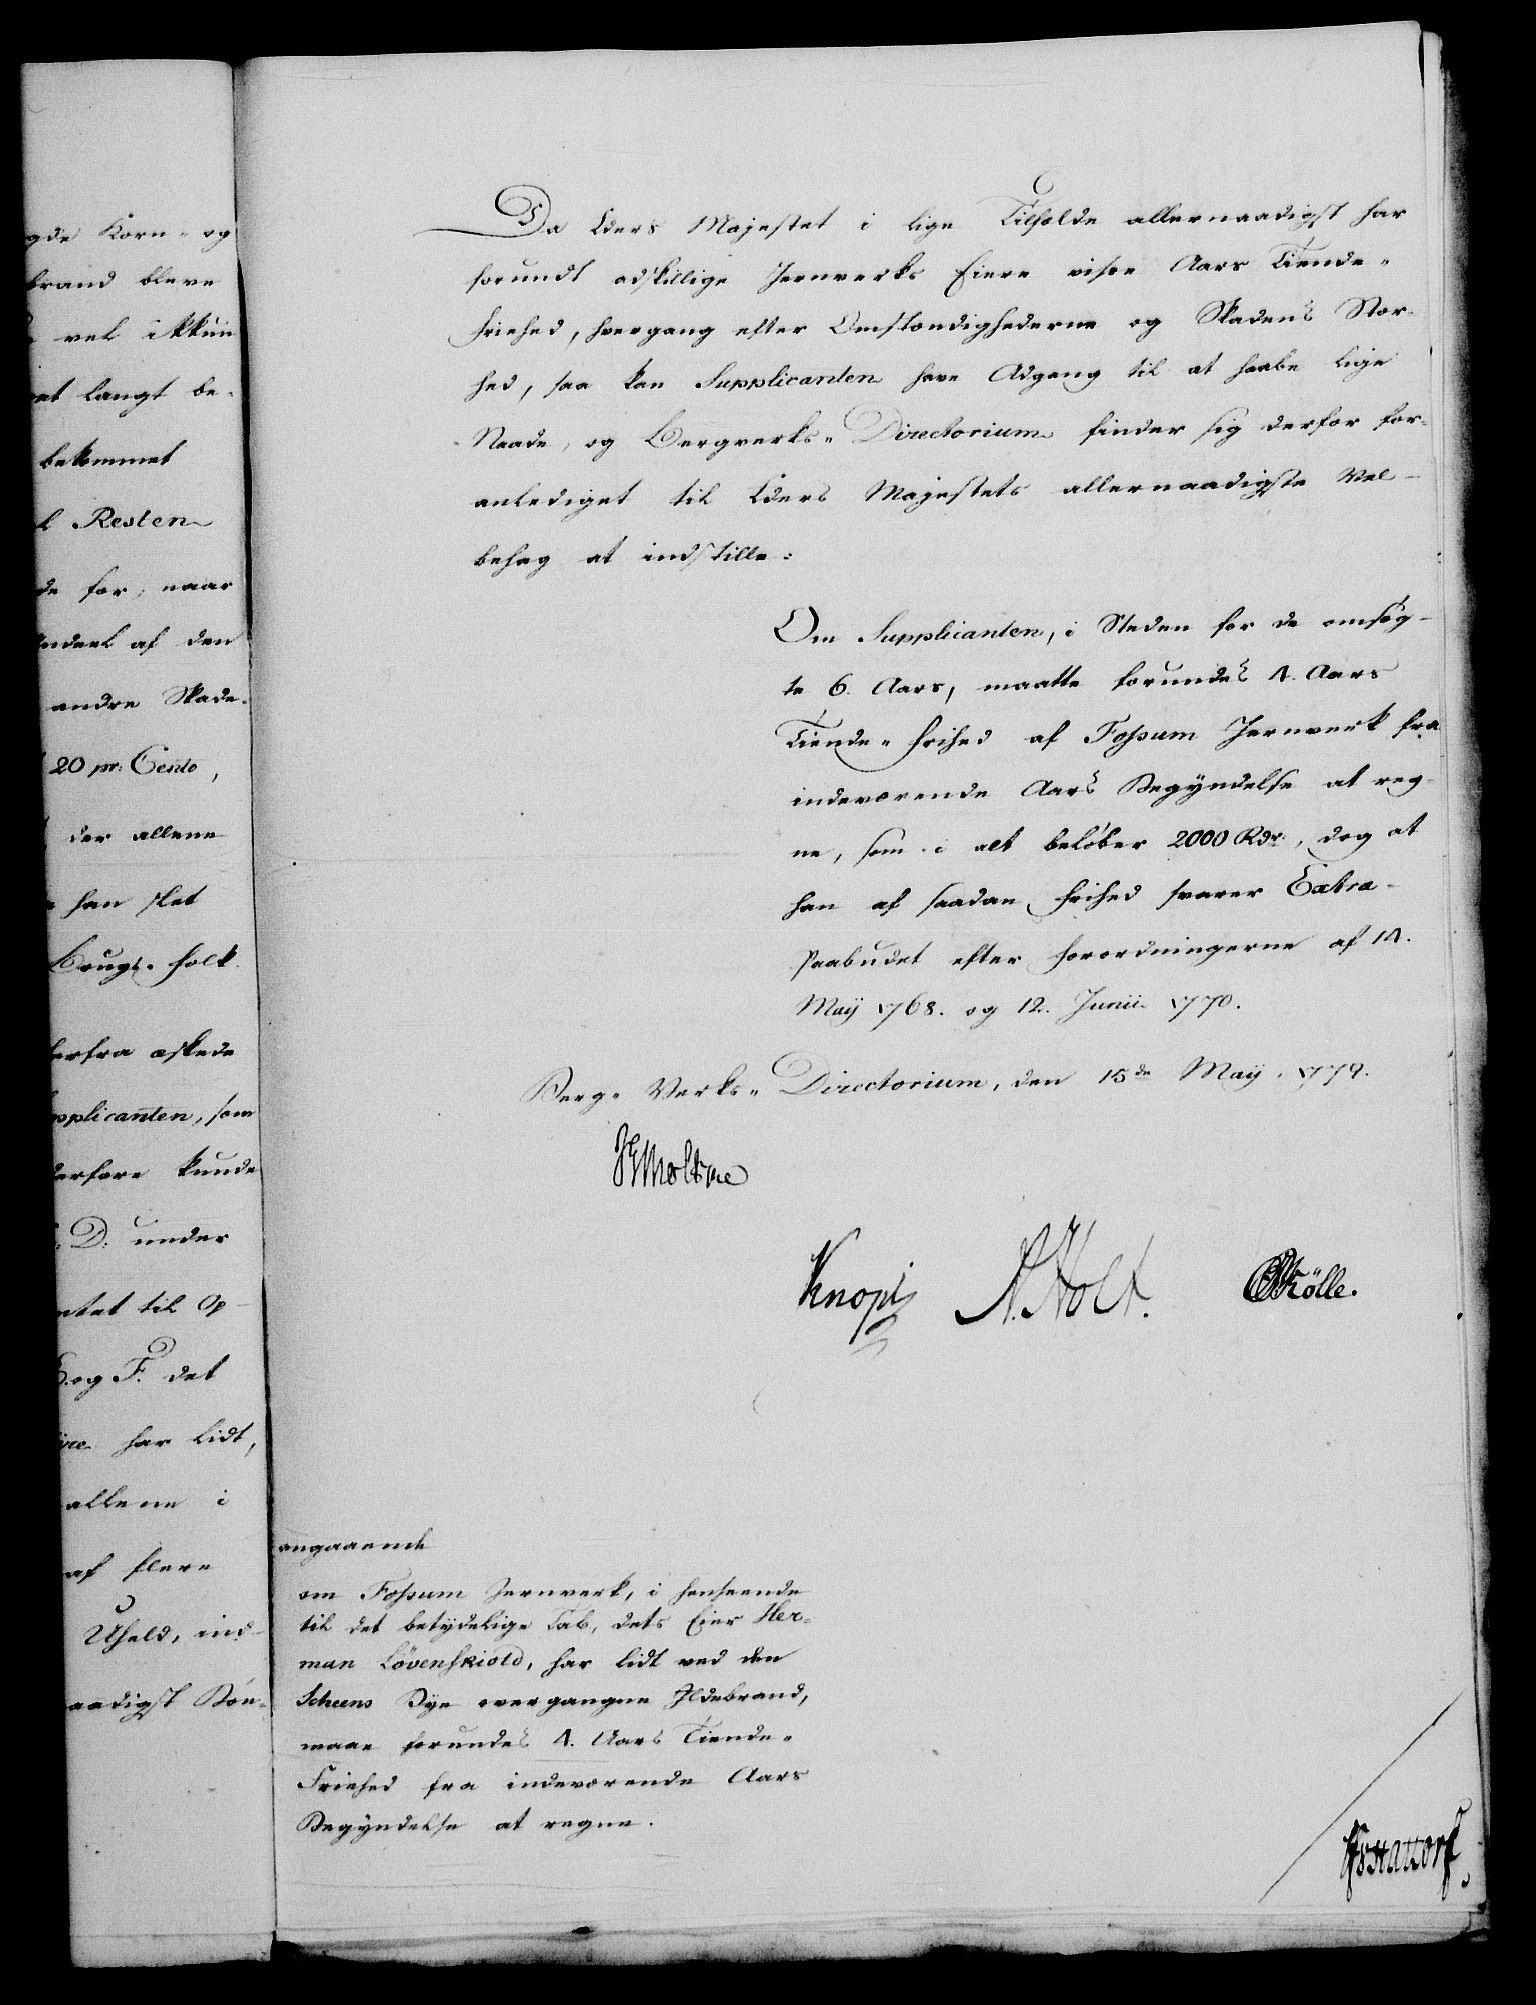 gde Korn- og
brand bleve
vel ikkun
et langt be-
bekommet
l Resten
de for, naar
ndeel af den
andre Skade-
20 pr: Cento,
der allene
han slet
Brugs-folk
erfra æskede
pplicanten, som
derfore kunde
D: under
ntet til Op-
E. og F. det
ire har lidt,
allene i
af flere
Uheld, ind-
aadigst Bøn-
Da Eders Majestet i lige Tilfælde allernaadigst har
forundt adskillige Jernverks Eiere visse Aars Tiende-
Friehed, hvergang efter Omstændighederne og Skadens Stor-
hed, saa kan Supplicanten have Adgang til at haabe lige
Naade, og Bergverks-Directorium finder sig derfor for-
anlediget til Eders Majestets allernaadigste Vel-
behag at indstille:
Om Supplicanten, i Steden for de ansøg-
te 6. Aars, maatte forundes 4. Aars
Tiende-Frihed af Fossum Jernverk fra
indeværende Aars Begyndelse at reg-
ne, som i alt beløber 2000 Rdr, dog at
han af saadan Frihed svarer Extra-
Paabudet efter Forordningerne af 14.
Maÿ 1768. og 12. Junii 1770.
Berg-Verks-Directorium, den 15de Maÿ. 1779.
JGMoltke
Knoph A. Holt. Rölle.
angaaende
om Fossum Jernverk, i henseende
til det betydelige Tab, dets Eier Her-
man Løvenskiold, har lidt ved den
Scheens Bÿe overgangne Ildebrand,
maae forundes 4. Aars Tiende-
Friehed fra indeværende Aars
Begyndelse at regne.